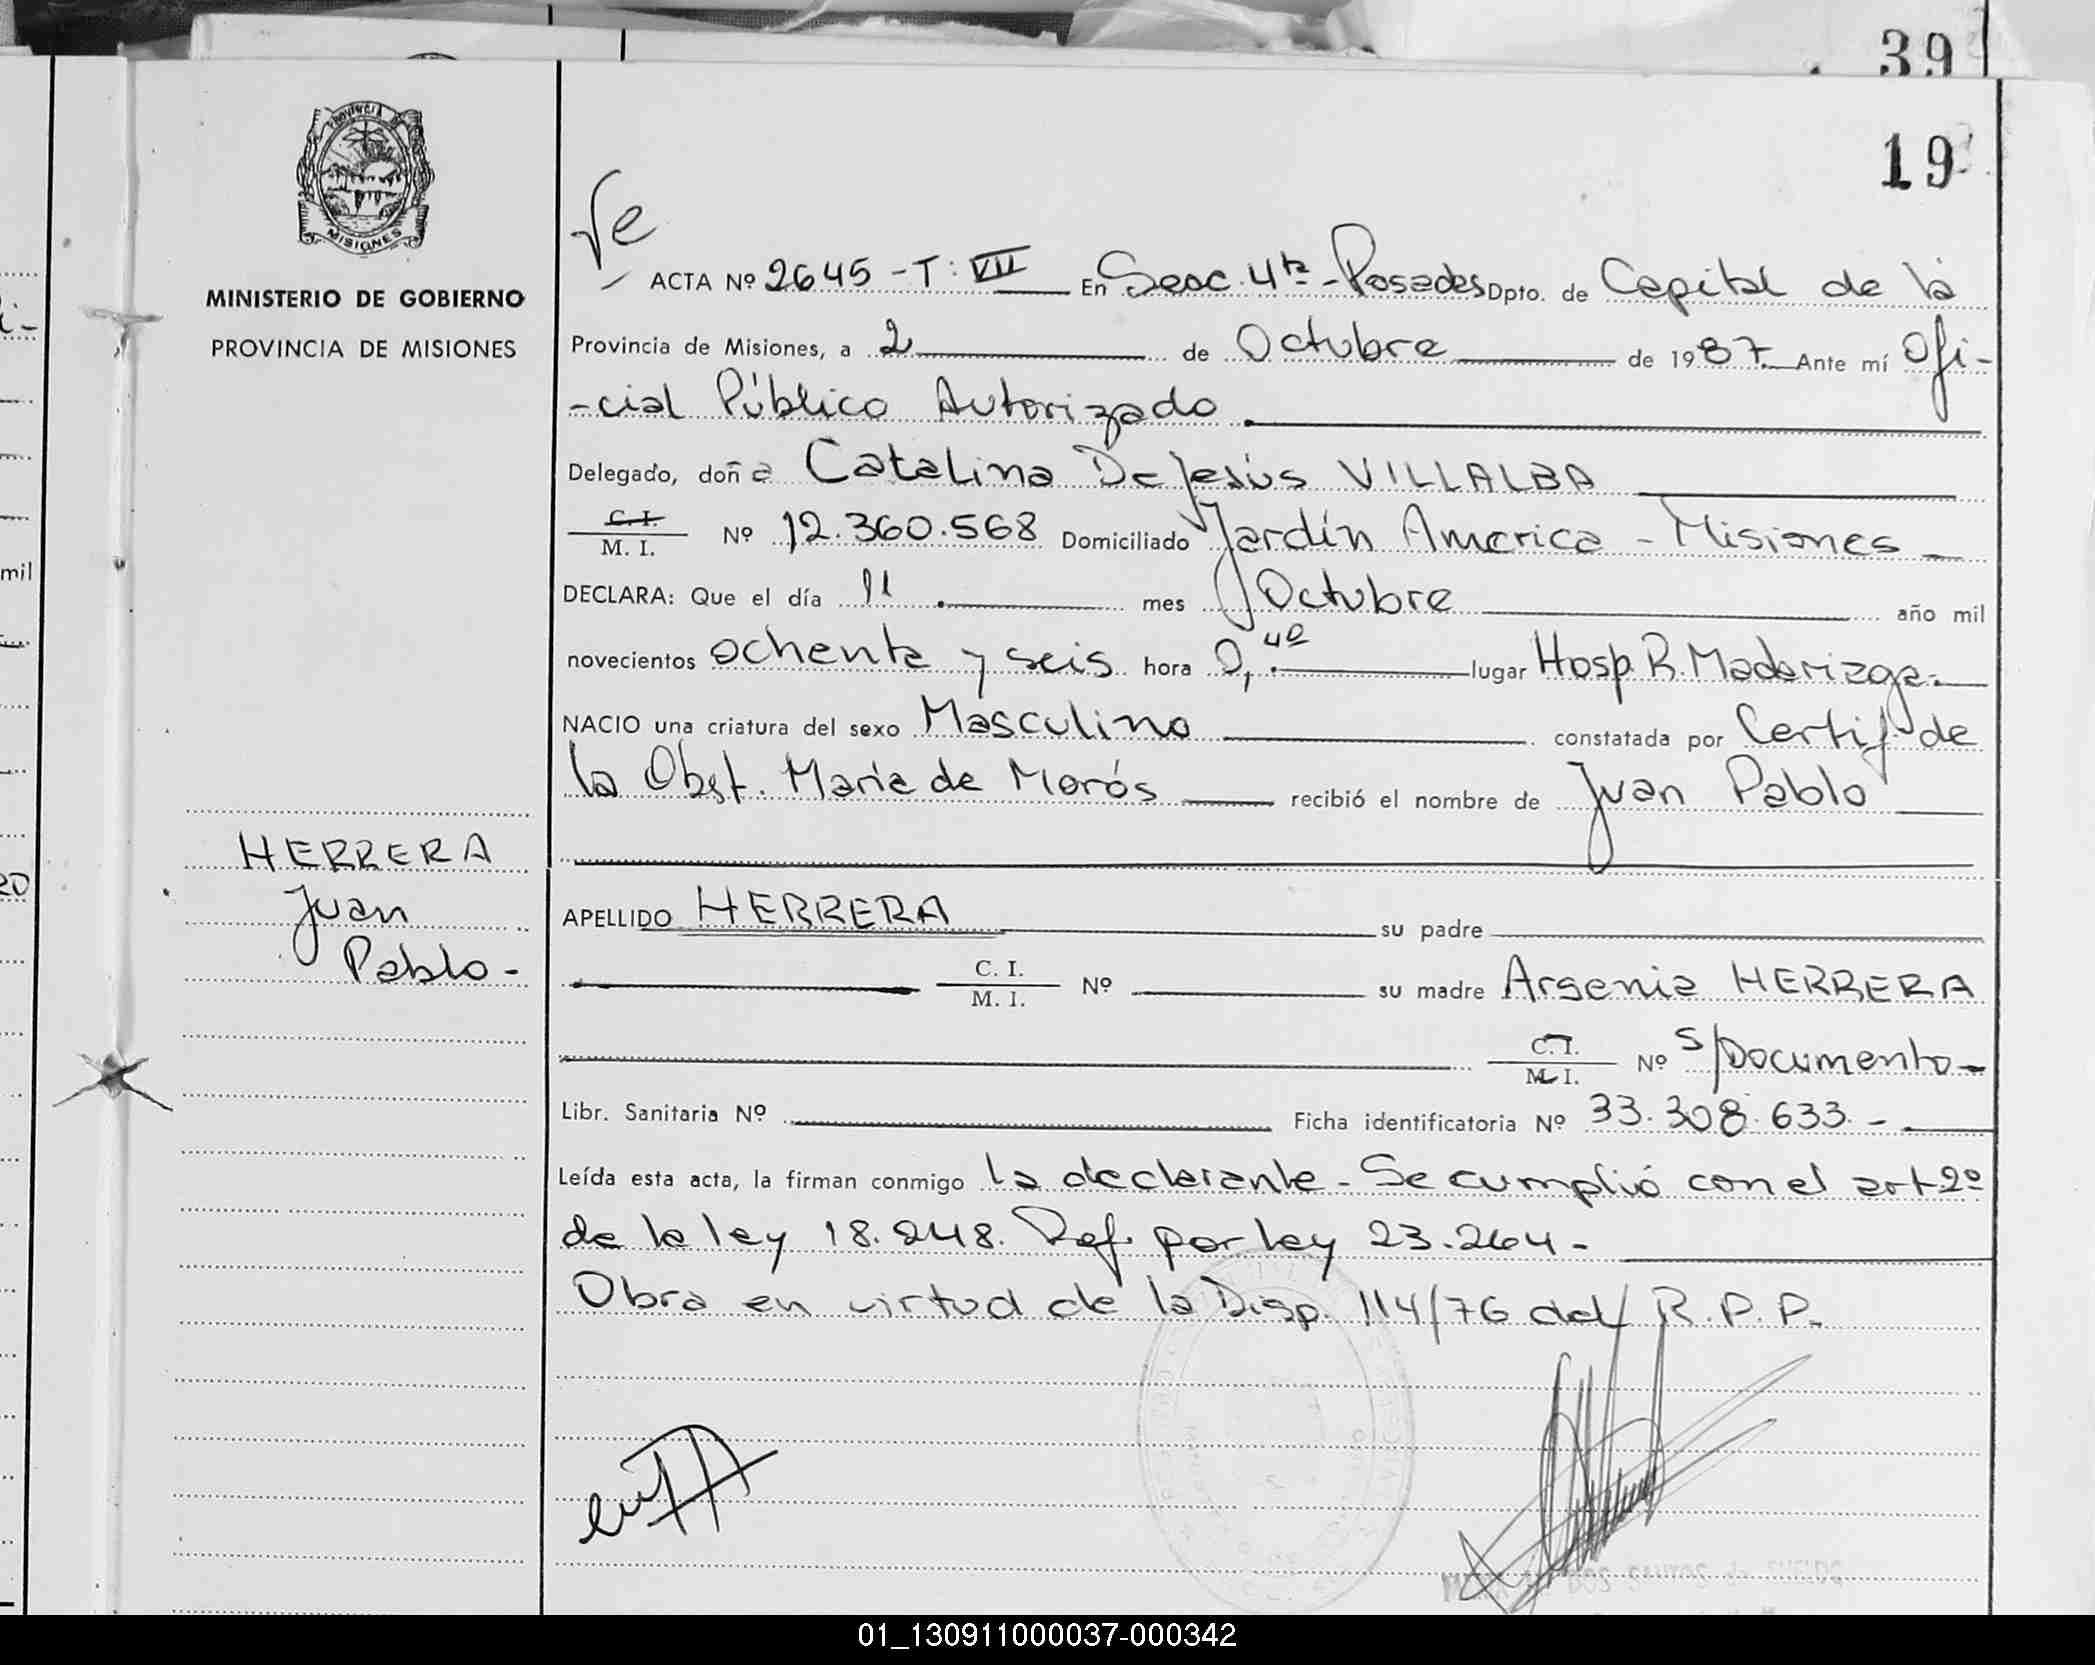 39
19
PROVINCIA DE
MISIONES
MINISTERIO DE GOBIERNO
PROVINCIA DE MISIONES
ACTA Nº 2645 - T: VII En Secc. 4ta - Posadas Dpto. de Capital de la
Provincia de Misiones, a 2 de Octubre de 1987. Ante mí Ofi-
-cial Público Autorizado
Delegado, doña Catalina De Jesús VILLALBA
C. I.
M. I. Nº 12.360.568 Domiciliado Jardín America - Misiones
DECLARA: Que el día 11 mes Octubre año mil
novecientos ochenta y seis hora 0,40 lugar Hosp. R. Madariaga.
NACIO una criatura del sexo Masculino constatada por Certif. de
la Obst. María de Morós recibió el nombre de Juan Pablo
HERRERA
Juan
Pablo -
APELLIDO HERRERA su padre
C. I.
M. I. Nº su madre Arsenia HERRERA
C. I.
M. I. Nº S/Documento -
Libr. Sanitaria Nº Ficha identificatoria Nº 33.308.633. -
Leída esta acta, la firman conmigo la declarante - Se cumplió con el art 2º
de la ley 18.248. Ref. por ley 23.264 -
Obra en virtud de la Disp. 114/76 del R.P.P.
mil
20
01_130911000037-000342